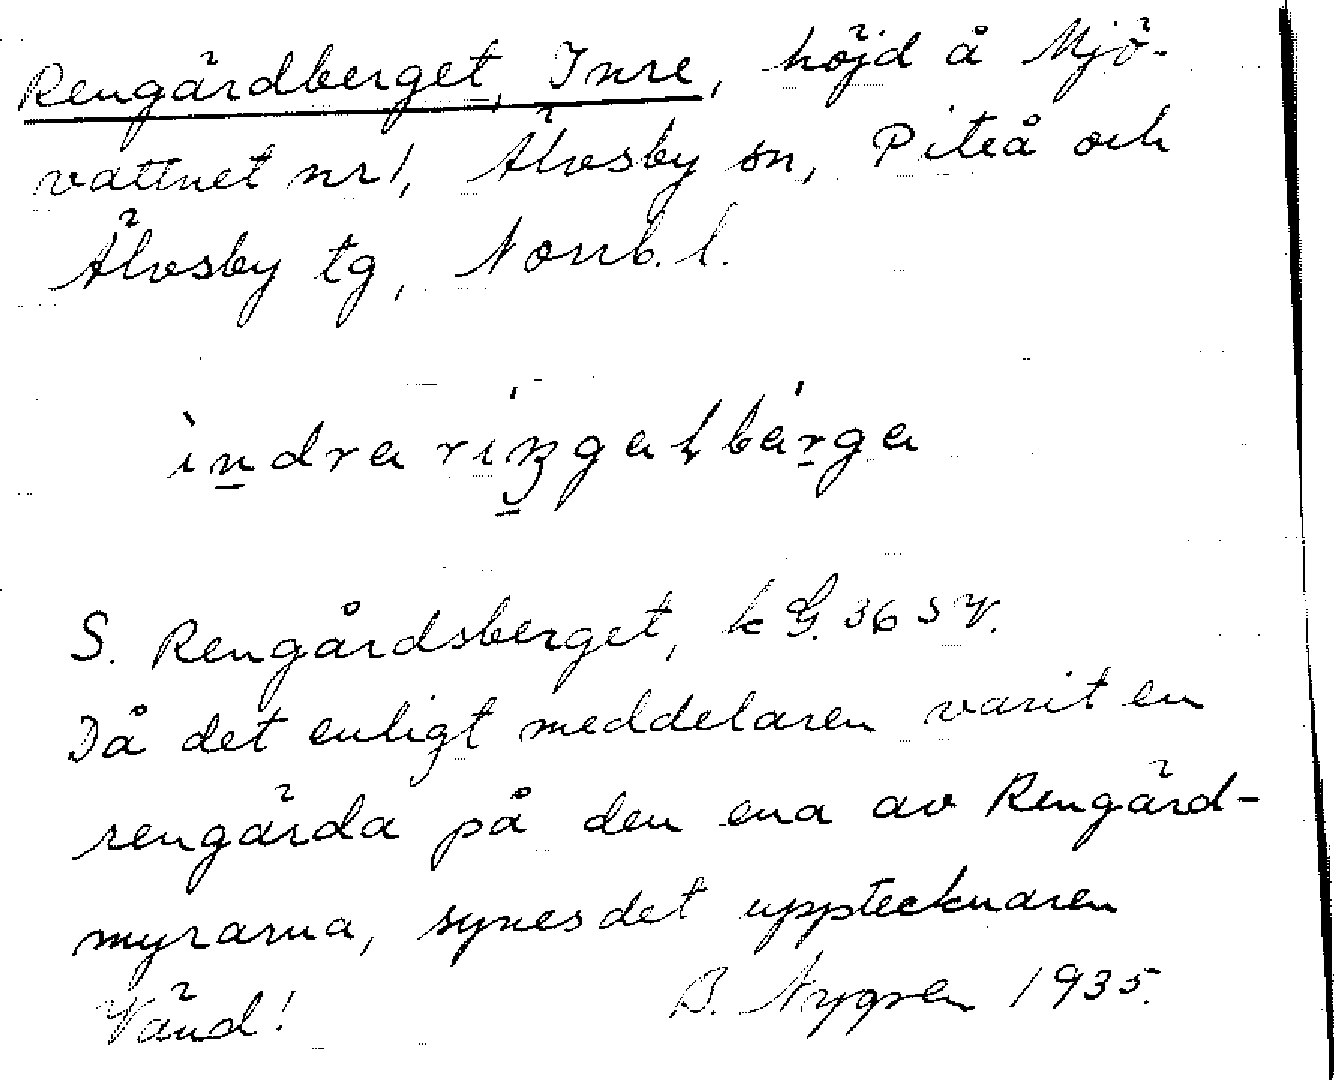 Rengärdberget, Inre, höjd å Mjö-
vattnet nr 1, Älvsby sn, Piteå och
Älvsby tg, Norrb. l.
S. Rengårdsberget, k G. 36 SV.
Då det enligt meddelaren varit en
rengärda på den ena av Rengärd-
myrarna, synes det upptecknaren
Vänd! B. Nygren 1935.